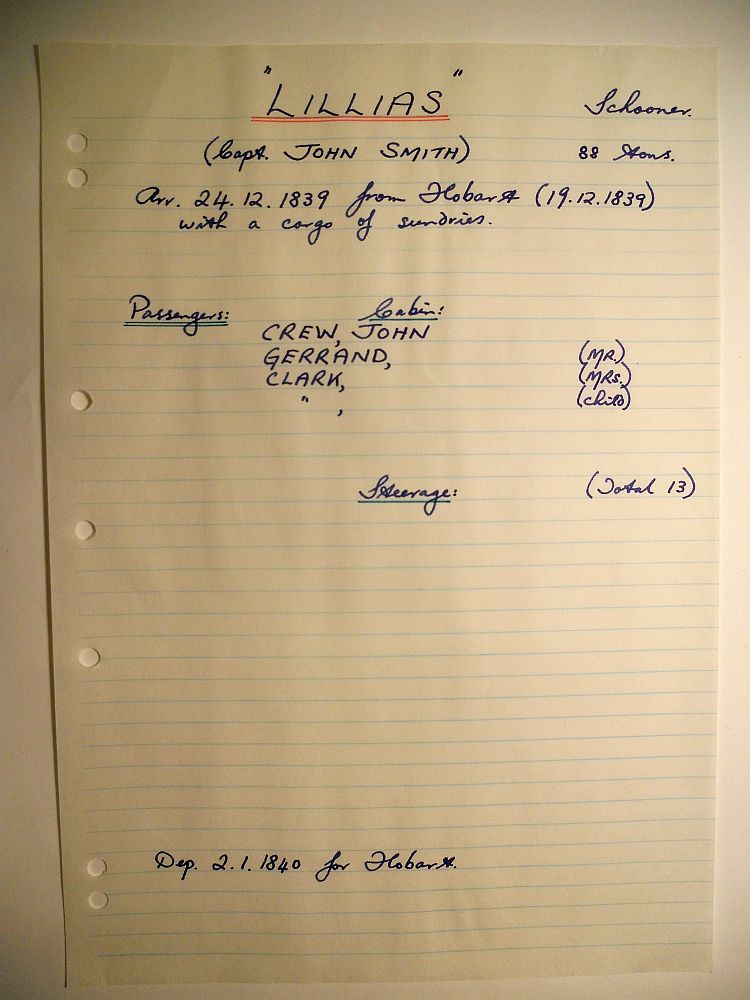 "LILLIAS" Schooner.
(Capt. JOHN SMITH) 88 Tons.
Arr. 24.12.1839 from Hobart (19.12.1839)
with a cargo of sundries.
Passengers: Cabin:
CREW, JOHN
GERRAND, (MR.)
CLARK, (MRS.)
" , (child)
Steerage: (Total 13)
Dep. 2.1.1840 for Hobart.